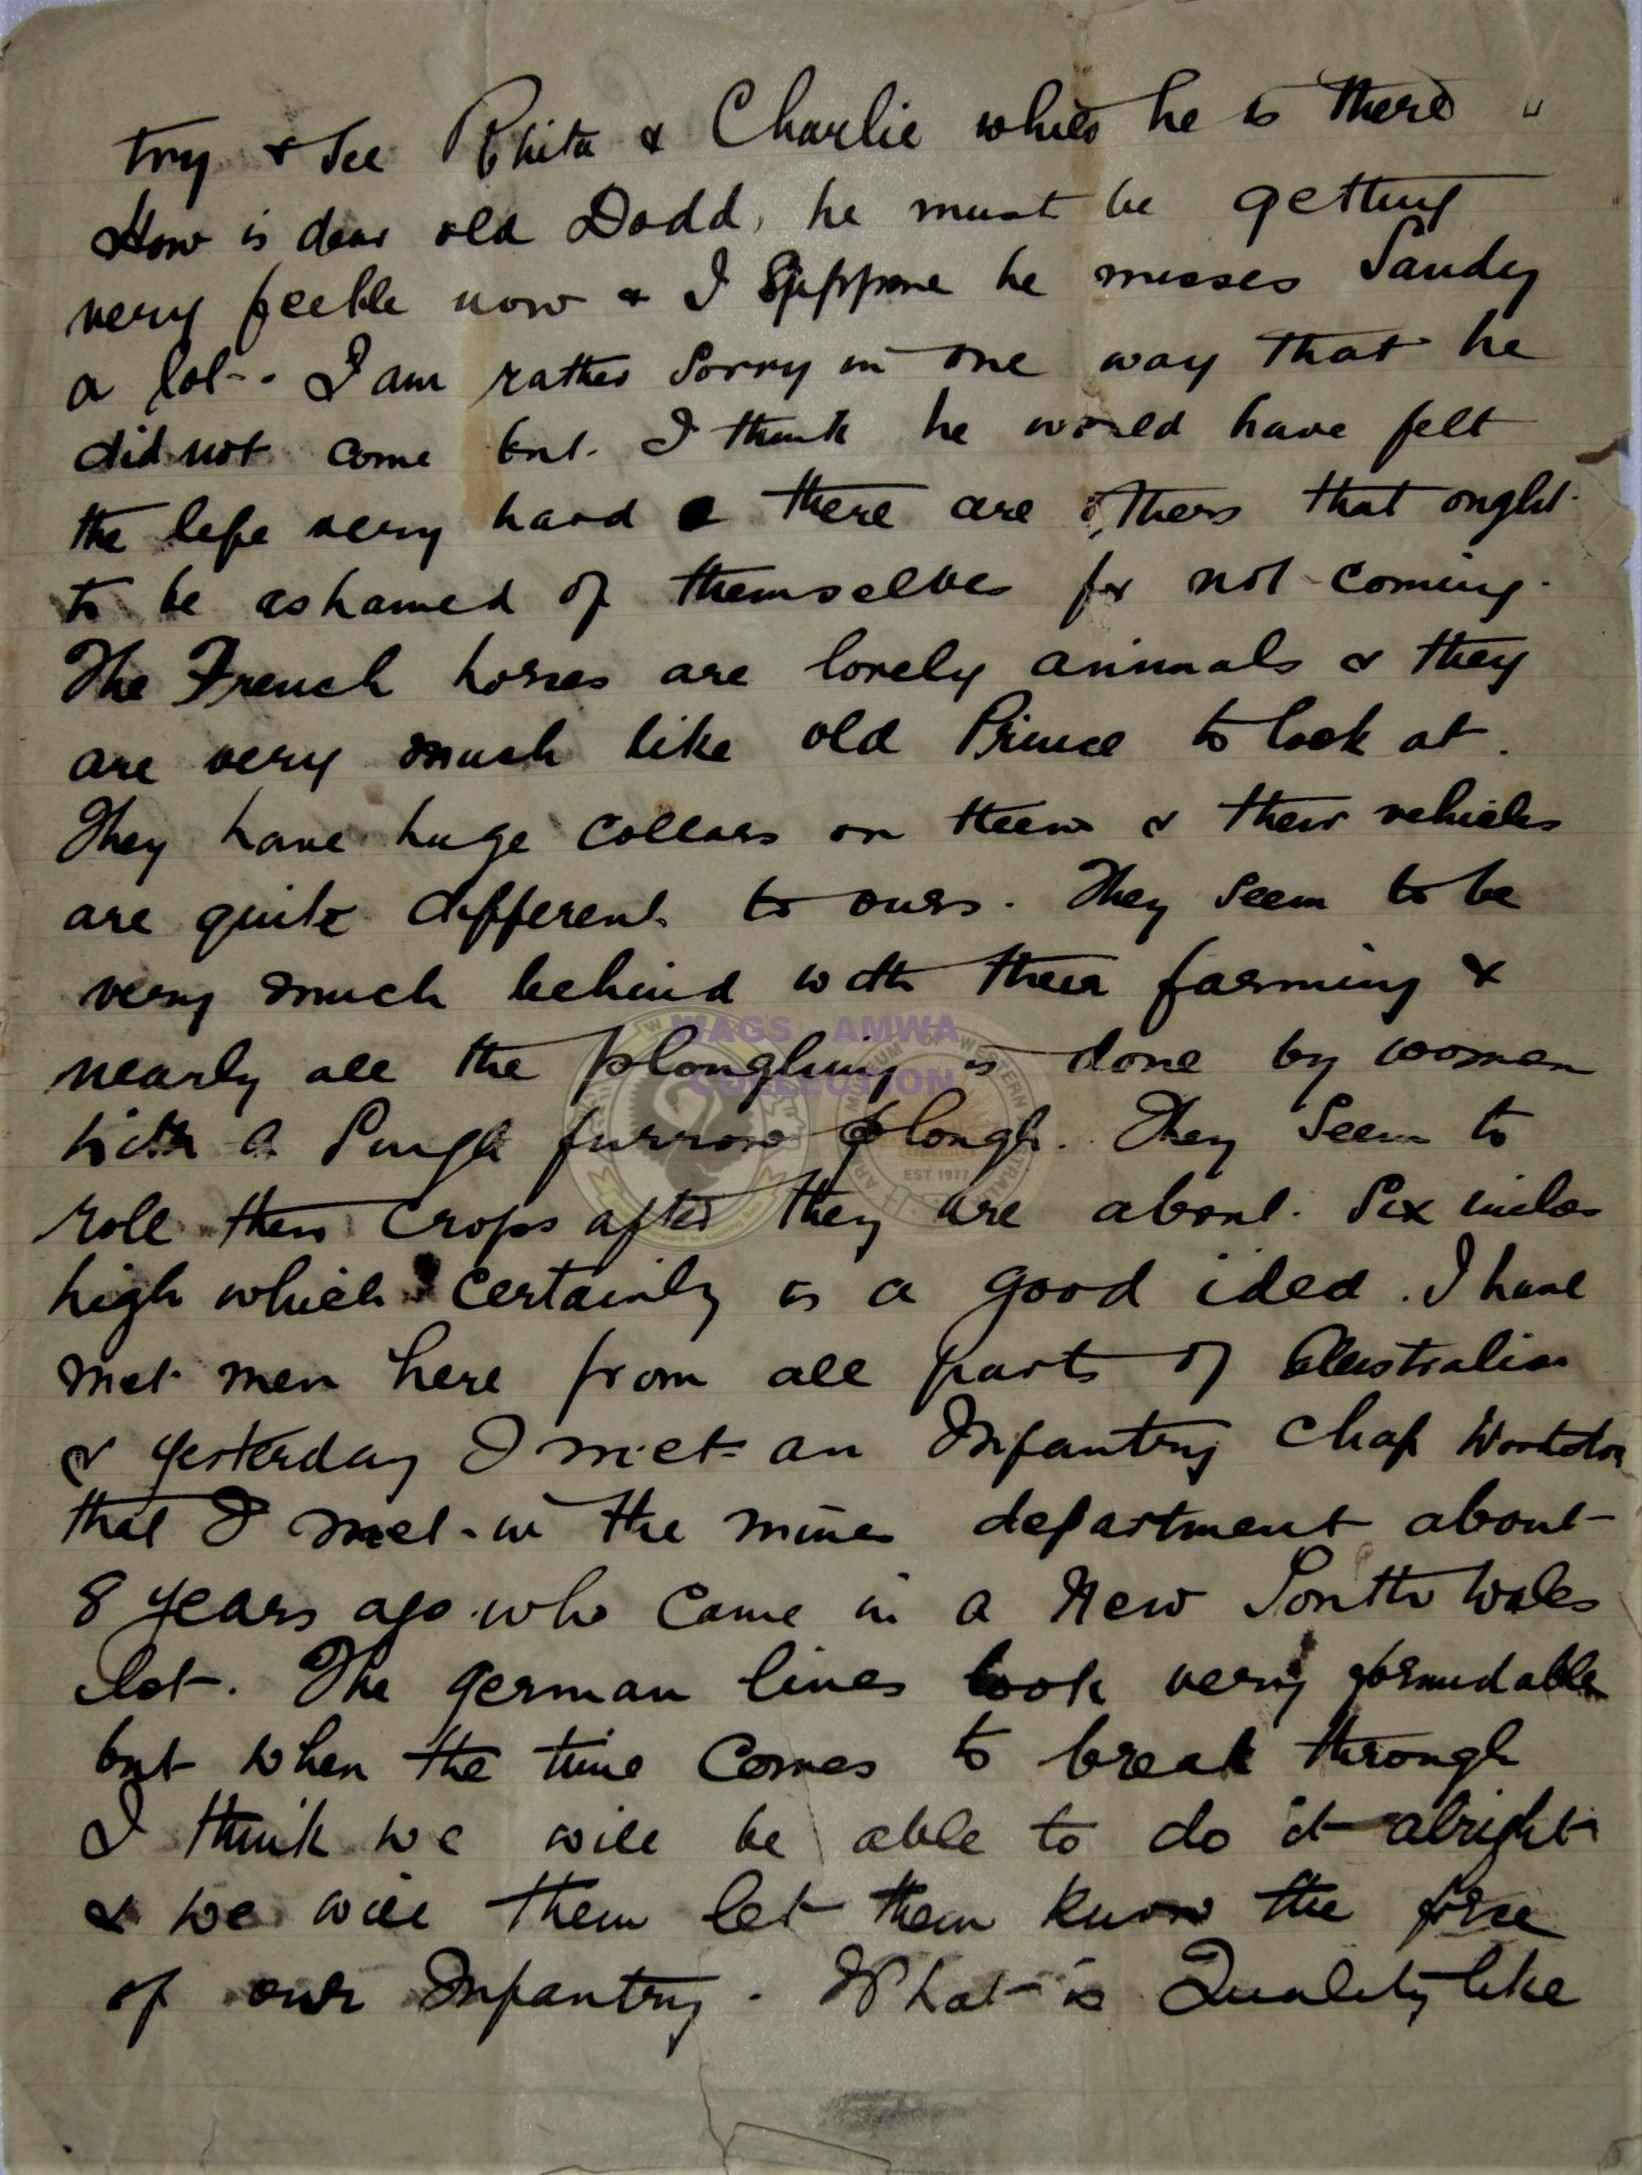 try & see Rhita & Charlie whils he is there "
How is dear old Dodd, he must be getting
very feeble now & I suppose he misses Sandy
a lot. I am rather sorry in one way that he
did not come but I think he would have felt
the life very hard & there are others that ought
to be ashamed of themselves for not coming.
The French horses are lovely animals & they
are very much like old Prince to look at.
They have huge collars on them & their vehicles
are quite different to ours. They seem to be
very much behind with their farming &
nearly all the ploughing is done by women
with a single furrow plough. They seem to
role their crops after they are about six inches
high which certainly is a good idea. I have
met men here from all parts of Australia
& yesterday I met an Infantry chap
that I met in the mines department about
8 years ago who came in a New South Wales
lot. The german lines look very formidable
but when the time comes to break through
I think we will be able to do it alright
& we will them let them know the force
of our Infantry. What is Quality like
WAGS AMWA
COLLECTION
EST 1977